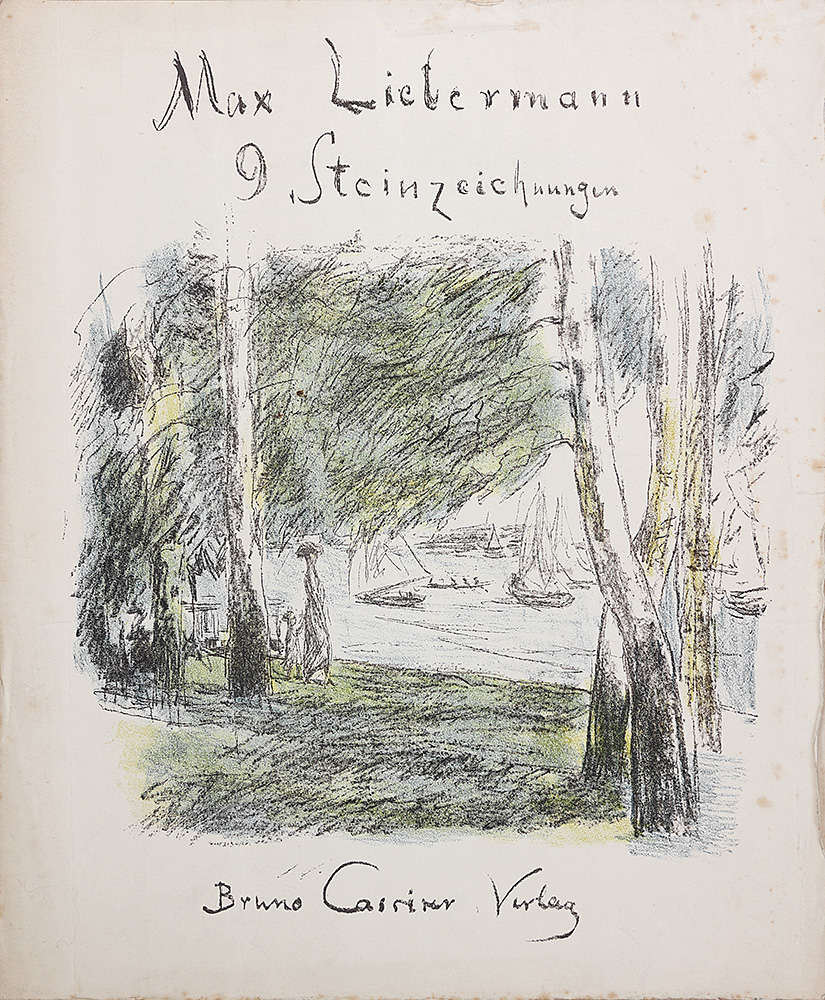 Max Liebermann
9 Steinzeichnungen
Bruno Cassirer Verlag